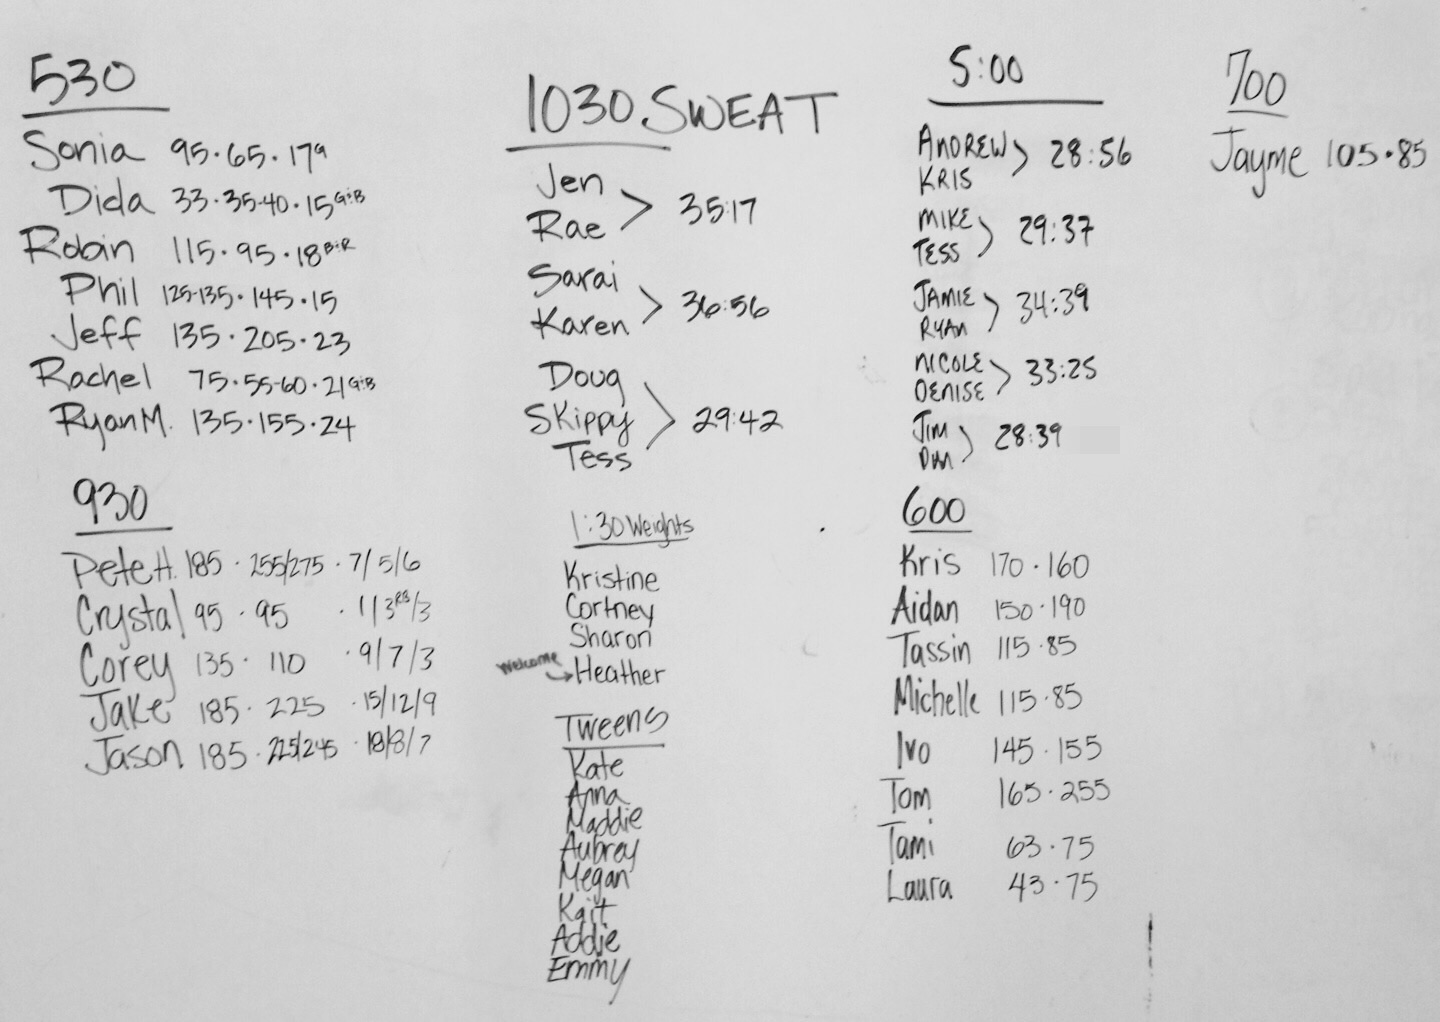 530
Sonia 95·65·17G
Dida 33·35-40·15G+B
Robin 115·95·18B+R
Phil 125-135·145·15
Jeff 135·205·23
Rachel 75·55-60·21G+B
Ryan M. 135·155·24
930
Pete H. 185 · 255/275 · 7/5/6
Crystal 95 · 95 · 11/3RB/3
Corey 135 · 110 · 9/7/3
Jake 185 · 225 · 15/12/9
Jason 185 · 225/245 · 18/8/7
1030 SWEAT
Jen
Rae > 35:17
Sarai
Karen > 36:56
Doug
Skippy > 29:42
Tess
1:30 Weights
Kristine
Cortney
Sharon
Welcome → Heather
Tweens
Kate
Anna
Maddie
Aubrey
Megan
Kait
Addie
Emmy
5:00
ANDREW
KRIS > 28:56
MIKE
TESS > 29:37
JAMIE
RYAN > 34:39
NICOLE
DENISE > 33:25
JIM
> 28:39
600
Kris 170·160
Aidan 150·190
Tassin 115·85
Michelle 115·85
Ivo 145·155
Tom 165·255
Tami 63·75
Laura 43·75
700
Jayme 105·85